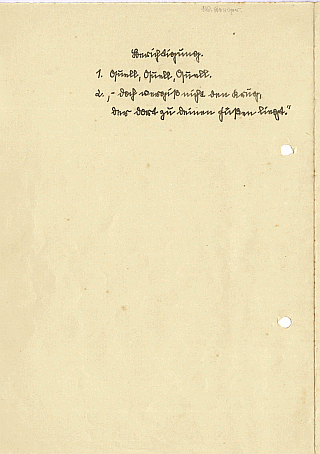 Berichtigung.
1. Quell, Quell, Quell.
2. ,- doch vergiß nicht den Krug,
der dort zu deinen Füßen liegt."